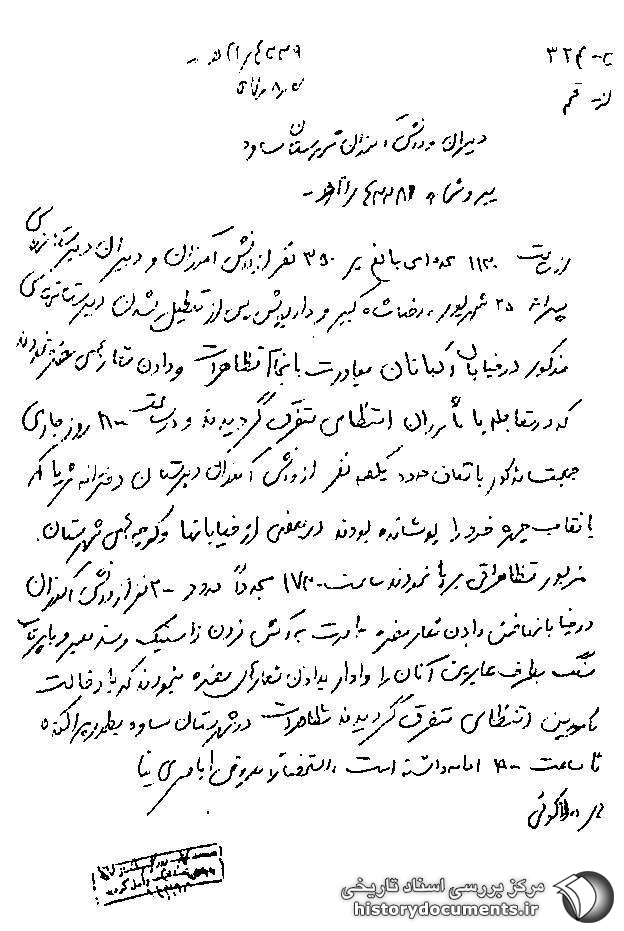 ۳۲۴
از قم
دبیران و دانش آموزان شهرستان ساوه
پیرو شماره
از ساعت ۱۱۳۰ عده‌ای بالغ بر ۳۵۰ نفر از دانش آموزان و دبیران
۲۵ شهریور، رضا شاه کبیر و داریوش پس از تعطیل شدن دبیرستانهای
مذکور در خیابان اکباتان مبادرت با انجام تظاهرات و دادن شعارهای مضره نمودند
که در مقابله با مأموران انتظامی متفرق گردیدند و در ساعت روز جاری
جمعیت مذکور با تعداد حدود یکصد نفر از دانش آموزان دبیرستان دخترانه ثریا که
با نقاب چهره خود را پوشانده بودند در بعضی از خیابانها و کوچه‌های شهرستان
مزبور تظاهراتی برپا نمودند ساعت ۱۷۳۰ مجدداً حدود ۲۰۰ نفر از دانش آموزان
در خیابانها ضمن دادن شعار مضره مبادرت به آتش زدن لاستیک و سد معبر و با پرتاب
سنگ بطرف عابرین آنان را وادار بدادن شعارهای مضره نمودند که با دخالت
مأمورین انتظامی متفرق گردیدند تظاهرات در شهرستان ساوه بطور پراکنده
تا ساعت ادامه داشته است
مرکز بررسی اسناد تاریخی
historydocuments.ir